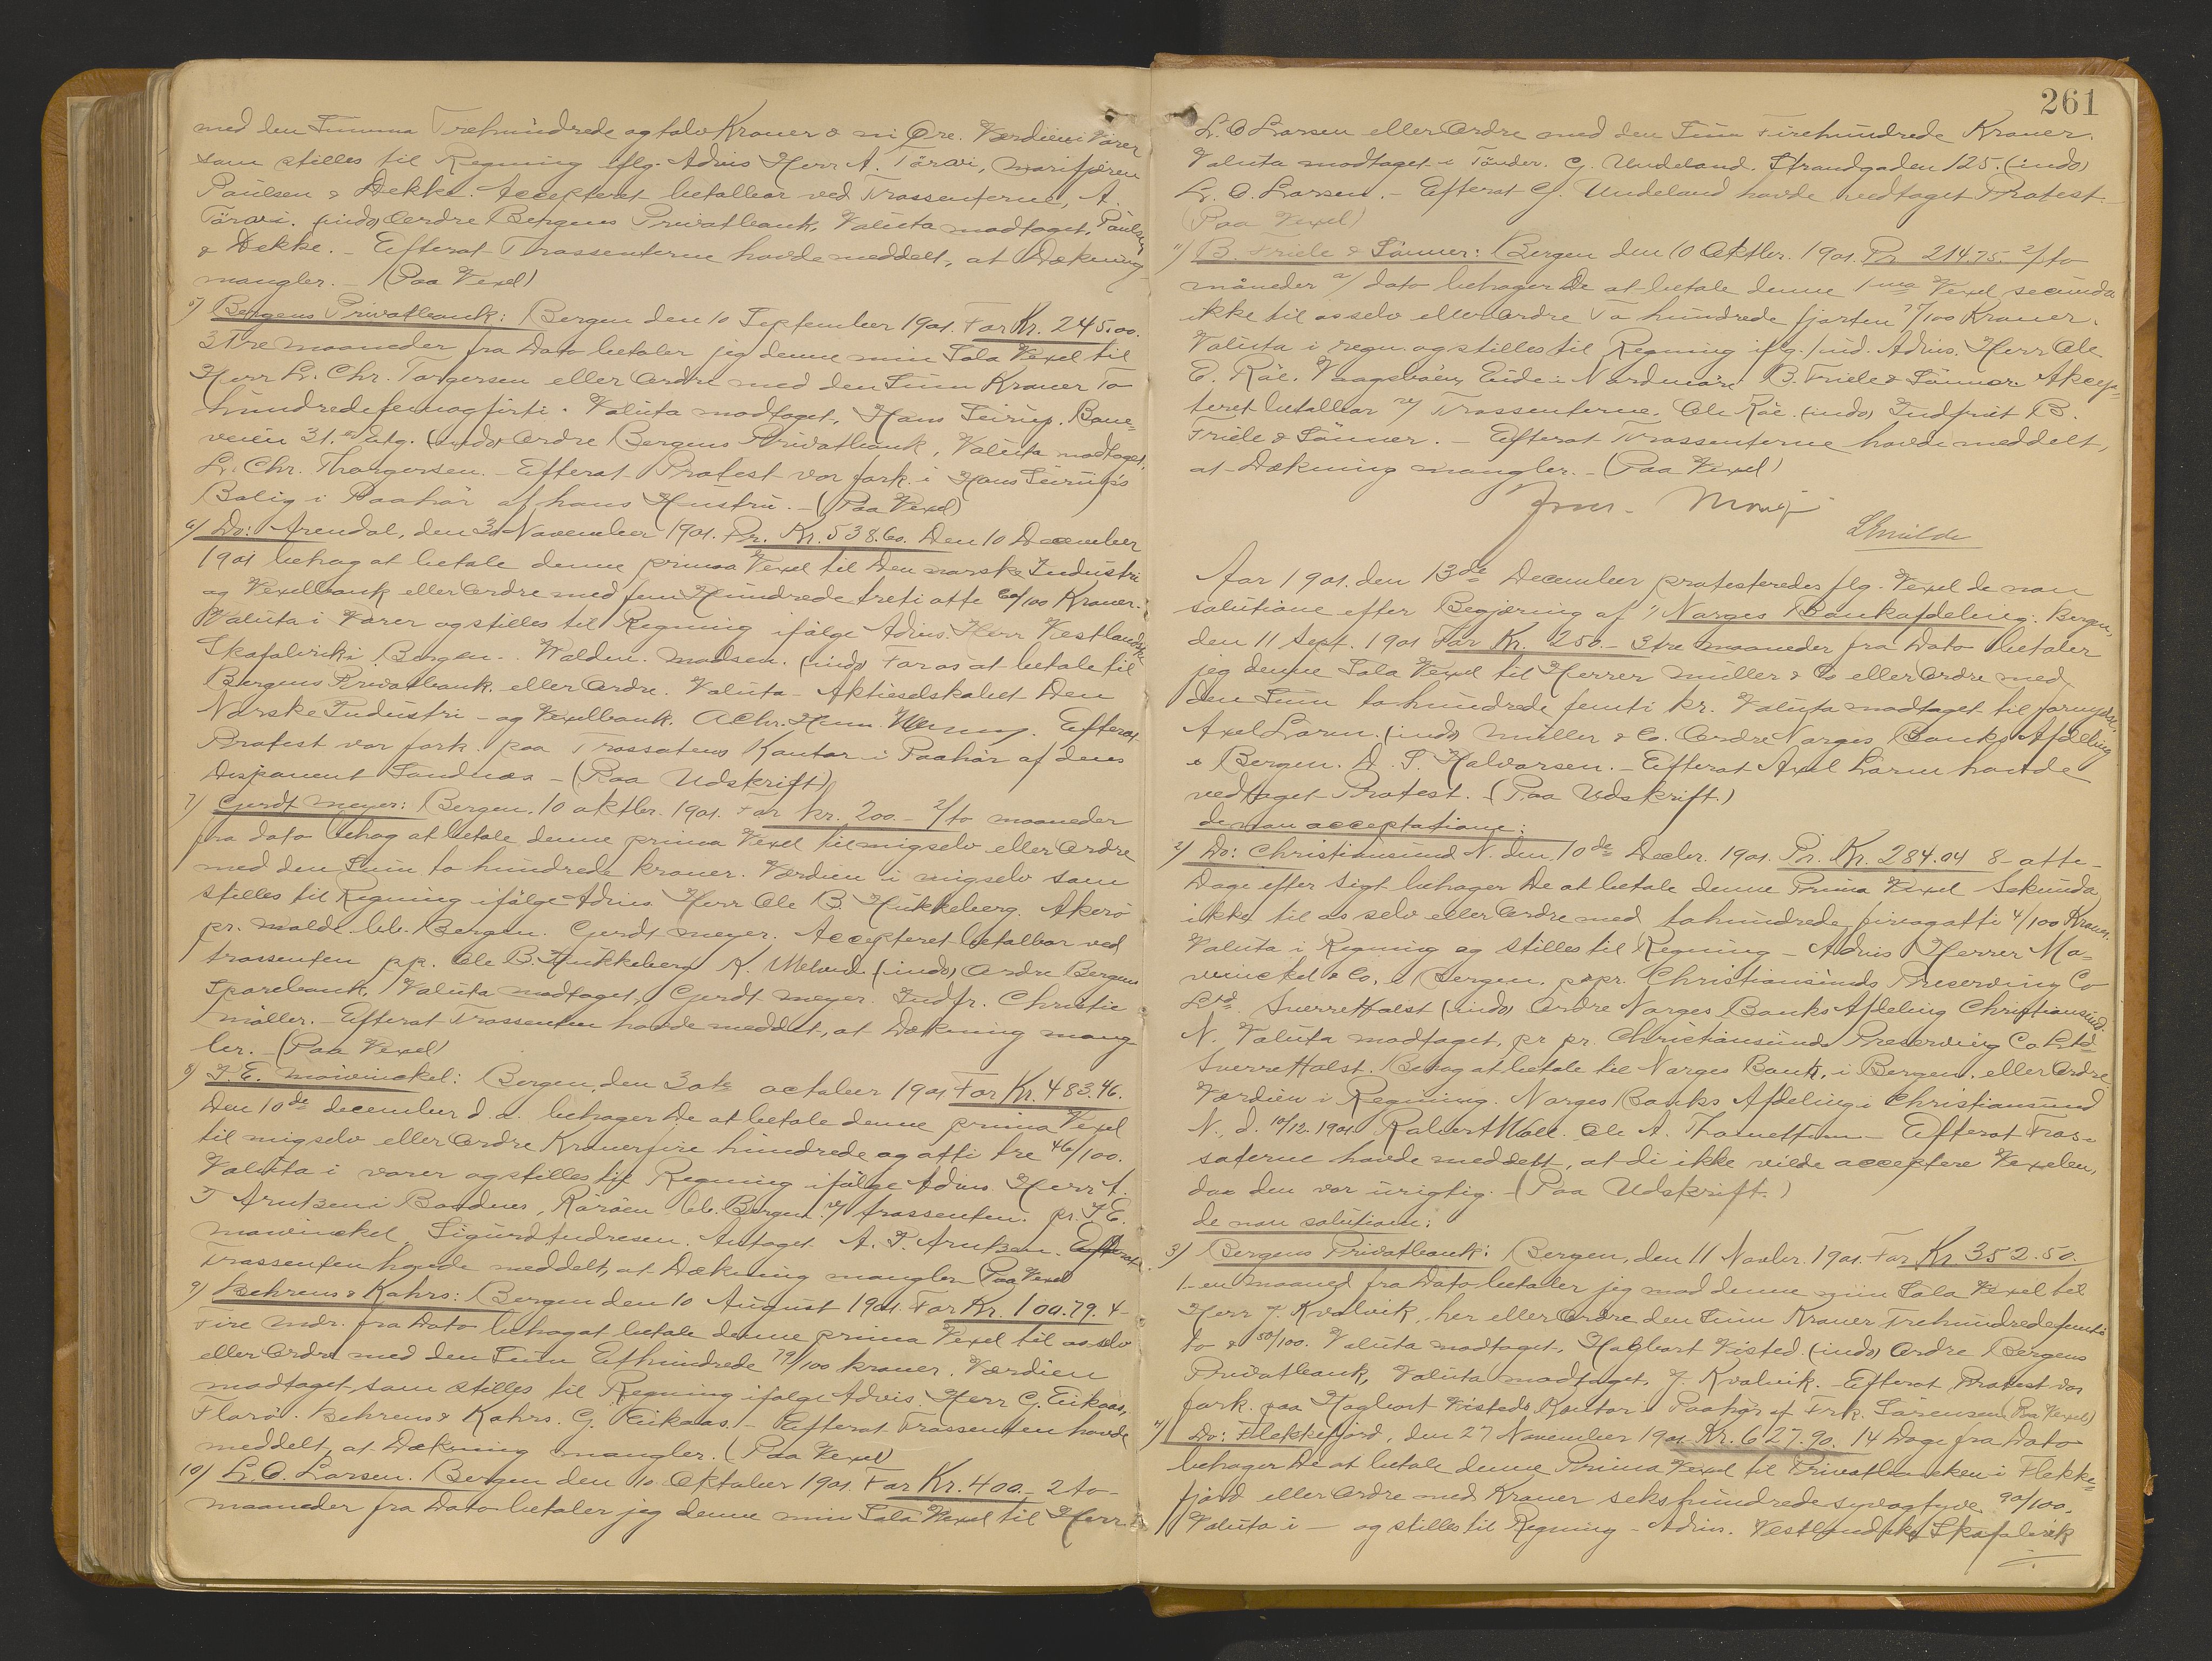 med den Summa Trehundrede og tolv Kroner & ni Øre. Værdien i Varer
som stilles til Regning iflg. Advis Herr A. Törvi, Marifjæren
Paulsen & Dekke. Accepteret betalbar ved Trassenterne, A.
Törvi. (indo) Ordre Bergens Privatbank, Valuta modtaget, Paulsen
& Dekke. – Efterat Trassenterne havde meddelt, at Dækning
mangler. – (Paa Vexel)
5) Bergens Privatbank: Bergen den 10 September 1901. For Kr. 245.00.
3 Tre maaneder fra Dato betaler jeg denne min Sola Vexel til
Herr L. Chr. Torgersen eller Ordre med den Sum Kroner To
hundrede femogfirti. Valuta modtaget, Hans Seirup.
veien 31. (indo) Ordre Bergens Privatbank, Valuta modtaget,
L. Chr. Thorgersen. – Efterat Protest var fork. i Hans Seirup's
Bolig i Paahör af hans Hustru. – (Paa Vexel)
6) Do: Arendal, den 3d November 1901. Pr. Kr. 538.60. Den 10 December
1901 behag at betale denne prima Vexel til Den norske Industri
og Vexelbank eller Ordre med fem Hundrede treti otte 60/100 Kroner.
Valuta i Varer og stilles til Regning ifölge Advis. Herr Vestlandske
Skofabrik i Bergen. Walden. Madsen. (indo) For os at betale til
Bergens Privatbank eller Ordre. Valuta – Aktieselskabet Den
Norske Industri – og Vexelbank. Efterat
Protest var fork. paa Trassatens Kontor i Paahör af dens
Disponent Sandnæs – (Paa Udskrift)
7) Gerdt Meyer: Bergen. 10 oktbr. 1901. For kr. 200. – 2/to maaneder
fra dato behag at betale denne prima Vexel til mig selv eller Ordre
med den Sum to hundrede kroner. Værdien i mig selv som
stilles til Regning ifölge Advis. Herr Ole B. Hukkeberg. Akerö
pr. Molde bb. Bergen. Gerdt Meyer. Accepteret betalbar ved
trassenten pp. Ole B. Hukkeberg K. Meland. (indo) Ordre Bergens
Sparebank. Valuta modtaget, Gerdt Meyer. Indfr. Christie
Möller. – Efterat Trassenten havde meddelt, at Dækning mang-
ler. – (Paa Vexel)
8) J. E. Mowinckel: Bergen, den 3ote october 1901 For Kr. 483.46.
Den 10de december d. a. behager De at betale denne prima Vexel
til mig selv eller Ordre Kroner fire hundrede og otti tre 46/100.
Valuta i varer og stilles til Regning ifölge Advis Herr A.
T Arntzen i Bodnes, Rörøen bb. Bergen v/ trassenten. pr. J. E.
Mowinckel. Sigurd Andresen. Antaget A. T. Arntzen. Efterat
Trassenten havde meddelt, at Dækning mangler (Paa Vexel)
9) Behrens & Kahrs: Bergen den 10 August 1901. For Kr. 100.79. 4 –
Fire mdr. fra Dato behag at betale denne prima Vexel til os selv
eller Ordre med den Sum Ethundrede 79/100 kroner. Værdien
modtaget, som stilles til Regning ifølge Advis. Herr G. Eikaas,
Florö. Behrens & Kahrs. G. Eikaas. – Efterat Trassenten havde
meddelt, at Dækning mangler. (Paa Vexel)
10) L. O. Larsen. Bergen den 10 Oktober 1901. For Kr. 400. – 2 to –
maaneder fra Dato betaler jeg denne min Sola Vexel til Herr
261
L. O Larsen eller Ordre med den Sum Firehundrede Kroner.
Valuta modtaget i Tönder. G. Undeland. Strandgaden 125. (indo)
L. O. Larsen. – Efterat G. Undeland havde vedtaget Protest. –
(Paa Vexel)
11) B. Friele & Sönner: Bergen den 10 Oktbr. 1901. Pr 214.75. 2/to
måneder a/ dato behager De at betale denne 1ma Vexel, secunda
ikke til os selv eller Ordre To hundrede fjorten 75/100 Kroner.
Valuta i regn. og stilles til Regning iflg. ind. Advis. Herr Ole
E. Röe. Vaagsböen, Eide i Nordmöre B. Friele & Sönner. Akcep-
teret betalbar v/ Trassenterne. Ole Röe. (indo) Indfriet B.
Friele & Sönner. – Efterat Trassenterne havde meddelt,
at Dækning mangler. – (Paa Vexel)
Smilde
Aar 1901. den 13de December protesteredes flg. Vexel de non
solutione efter Begjæring af 1) Norges Bankafdeling: Bergen,
den 11 Sept. 1901 For Kr. 250. – 3 tre maaneder fra Dato betaler
jeg denne Sola Vexel til Herrer Müller & Co eller Ordre med
den Sum to hundrede femti kr. Valuta modtaget til fornyelse,
Axel Lorm. (indo) Müller & Co. Ordre Norges Banks Afdeling
i Bergen. D. S. Halvorsen. – Efterat Axel Lorm havde
vedtaget Protest. (Paa Udskrift.)
de non acceptatione:
2) Do: Christiansund N. den 10de Decbr. 1901. Pr. Kr. 284.04 8 – otte –
Dage efter Sigt behager De at betale denne Prima Vexel Sekunda
ikke til os selv eller Ordre med tohundrede fireogotti 4/100 Kroner.
Valuta i Regning og stilles til Regning – Advis Herrer Mo-
winckel & Co. i Bergen. p. pr. Christiansunds Preserving Co
Ltd. Sverre Holst (indo) Ordre Norges Banks Afdeling Christiansund
N. Valuta modtaget, pr pr. Christiansunds Preserving Co Ltd
Sverre Holst. Behag at betale til Norges Bank, i Bergen, eller Ordre.
Værdien i Regning. Norges Banks Afdeling i Christiansund
N., d. 10/12. 1901. Robert Moll. Ole A. – Efterat Tras-
saterne havde meddelt, at di ikke vilde acceptere Vexelen,
daa den var urigtig. – (Paa Udskrift.)
de non solutione:
3) Bergens Privatbank: Bergen, den 11 Novbr. 1901. For Kr. 352.50.
1 – en maaned fra Dato betaler jeg mod denne min Sola Vexel til
Herr J. Kvalvik, her eller Ordre, den Sum Kroner Trehundredefemti
to & 50/100. Valuta modtaget, Hagbart Visted. (indo) Ordre Bergens
Privatbank, Valuta modtaget, J. Kvalvik. – Efterat Protest var
fork. paa Hagbart Visteds Kontor i Paahör af Frk. Sörensen (Paa Vexel)
4) Do: Flekkefjord, den 27 November 1901. Kr. 627.90. 14 Dage fra Dato
behager De at betale denne Prima Vexel til Privatbanken i Flekke-
fjord eller Ordre med Kroner sekshundredesyvogtyve 90/100.
Valuta i – og stilles til Regning – Advis. Vestlandske Skofabrik